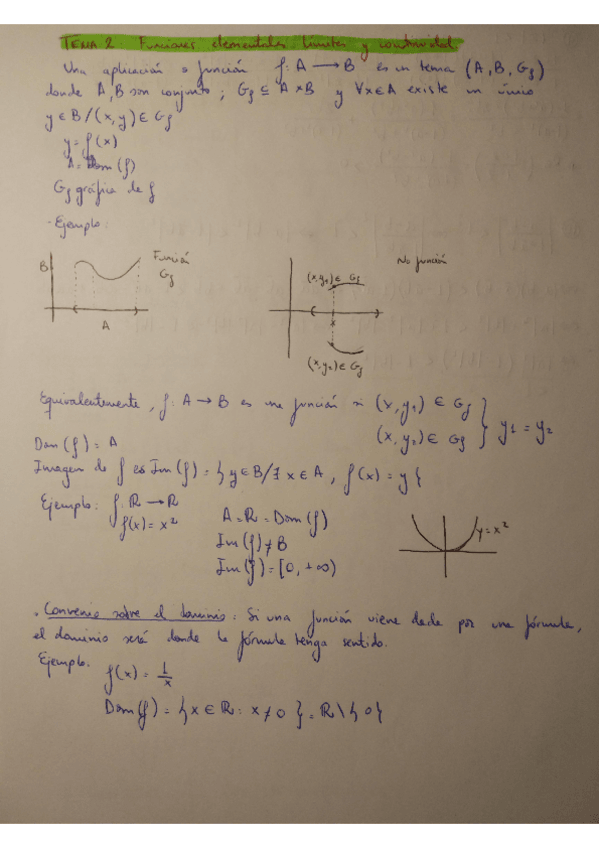 TEMA 2: Funciones elementales. Límites y continuidad
Una aplicación o función f: A → B es un terna (A, B, Gf)
donde A, B son conjunto; Gf ⊆ A × B y ∀x∈A existe un único
y ∈ B / (x, y) ∈ Gf
y = f(x)
A = Dom (f)
Gf gráfica de f
- Ejemplo:
B
Función
Gf
A
(x, y1) ∈ Gf
No función
x
(x, y2) ∈ Gf
Equivalentemente, f: A → B es una función si (x, y1) ∈ Gf
(x, y2) ∈ Gf } y1 = y2
Dom (f) = A
Imagen de f es Im (f) = { y ∈ B / ∃ x ∈ A, f(x) = y }
Ejemplo: f: ℝ → ℝ
f(x) = x²
A = ℝ = Dom (f)
Im (f) ≠ B
Im (f) = [0, +∞)
y = x²
· Convenio sobre el dominio: Si una función viene dada por una fórmula,
el dominio será donde la fórmula tenga sentido.
Ejemplo.
f(x) = 1/x
Dom (f) = { x ∈ ℝ : x ≠ 0 } = ℝ \ { 0 }